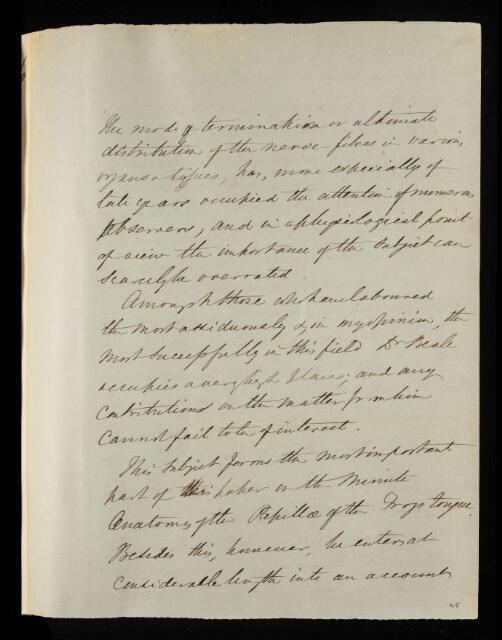 The mode of termination or ultimate
distribution of the nerve fibres in various
organs & tissues, has, more especially of
late years occupied the attention of numerous
observers, and in a physiological point
of view the importance of the subject can
scarcely be overrated.
Amongst those who have laboured
the most assiduously & in my opinion, the
most successfully in this field Dr Beale
occupies a very high place; and any
contributions on the matter from him
cannot fail to be of interest.
This subject forms the most important
part of this paper on the Minute
Anatomy of the Papillæ of the Frogs tongue.
Besides this, however, he enters at
considerable length into an account
45